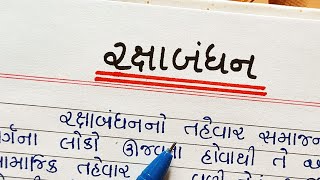 રક્ષાબંધન
રક્ષાબંધનનો તહેવાર સમાજના
ર્ગના લોકો ઊજવતા હોવાથી તે
ામાજિક તહેવાર